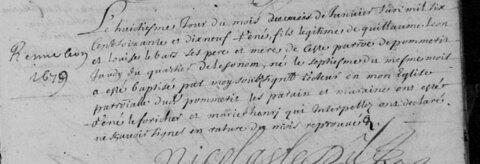 Le huictiesme Jour du mois du mois de Janvier Lan mil six
Cent soixante et dix neuf René fils legitime de guillaume leon
et louise le bars ses pere et mere de ceste paroesse de pommerit
Jaudy du quartier de né le septiesme du mesme mois
a esté baptisé par moy soubsigné Recteur en mon Eglise
parroissiale dud pommerit les parain et maraine ont esté
René le et marie qui Interpellez ont declaré
ne sçavoir signer en rature du mois reprouvée
Rene leon
1679
Nicolas